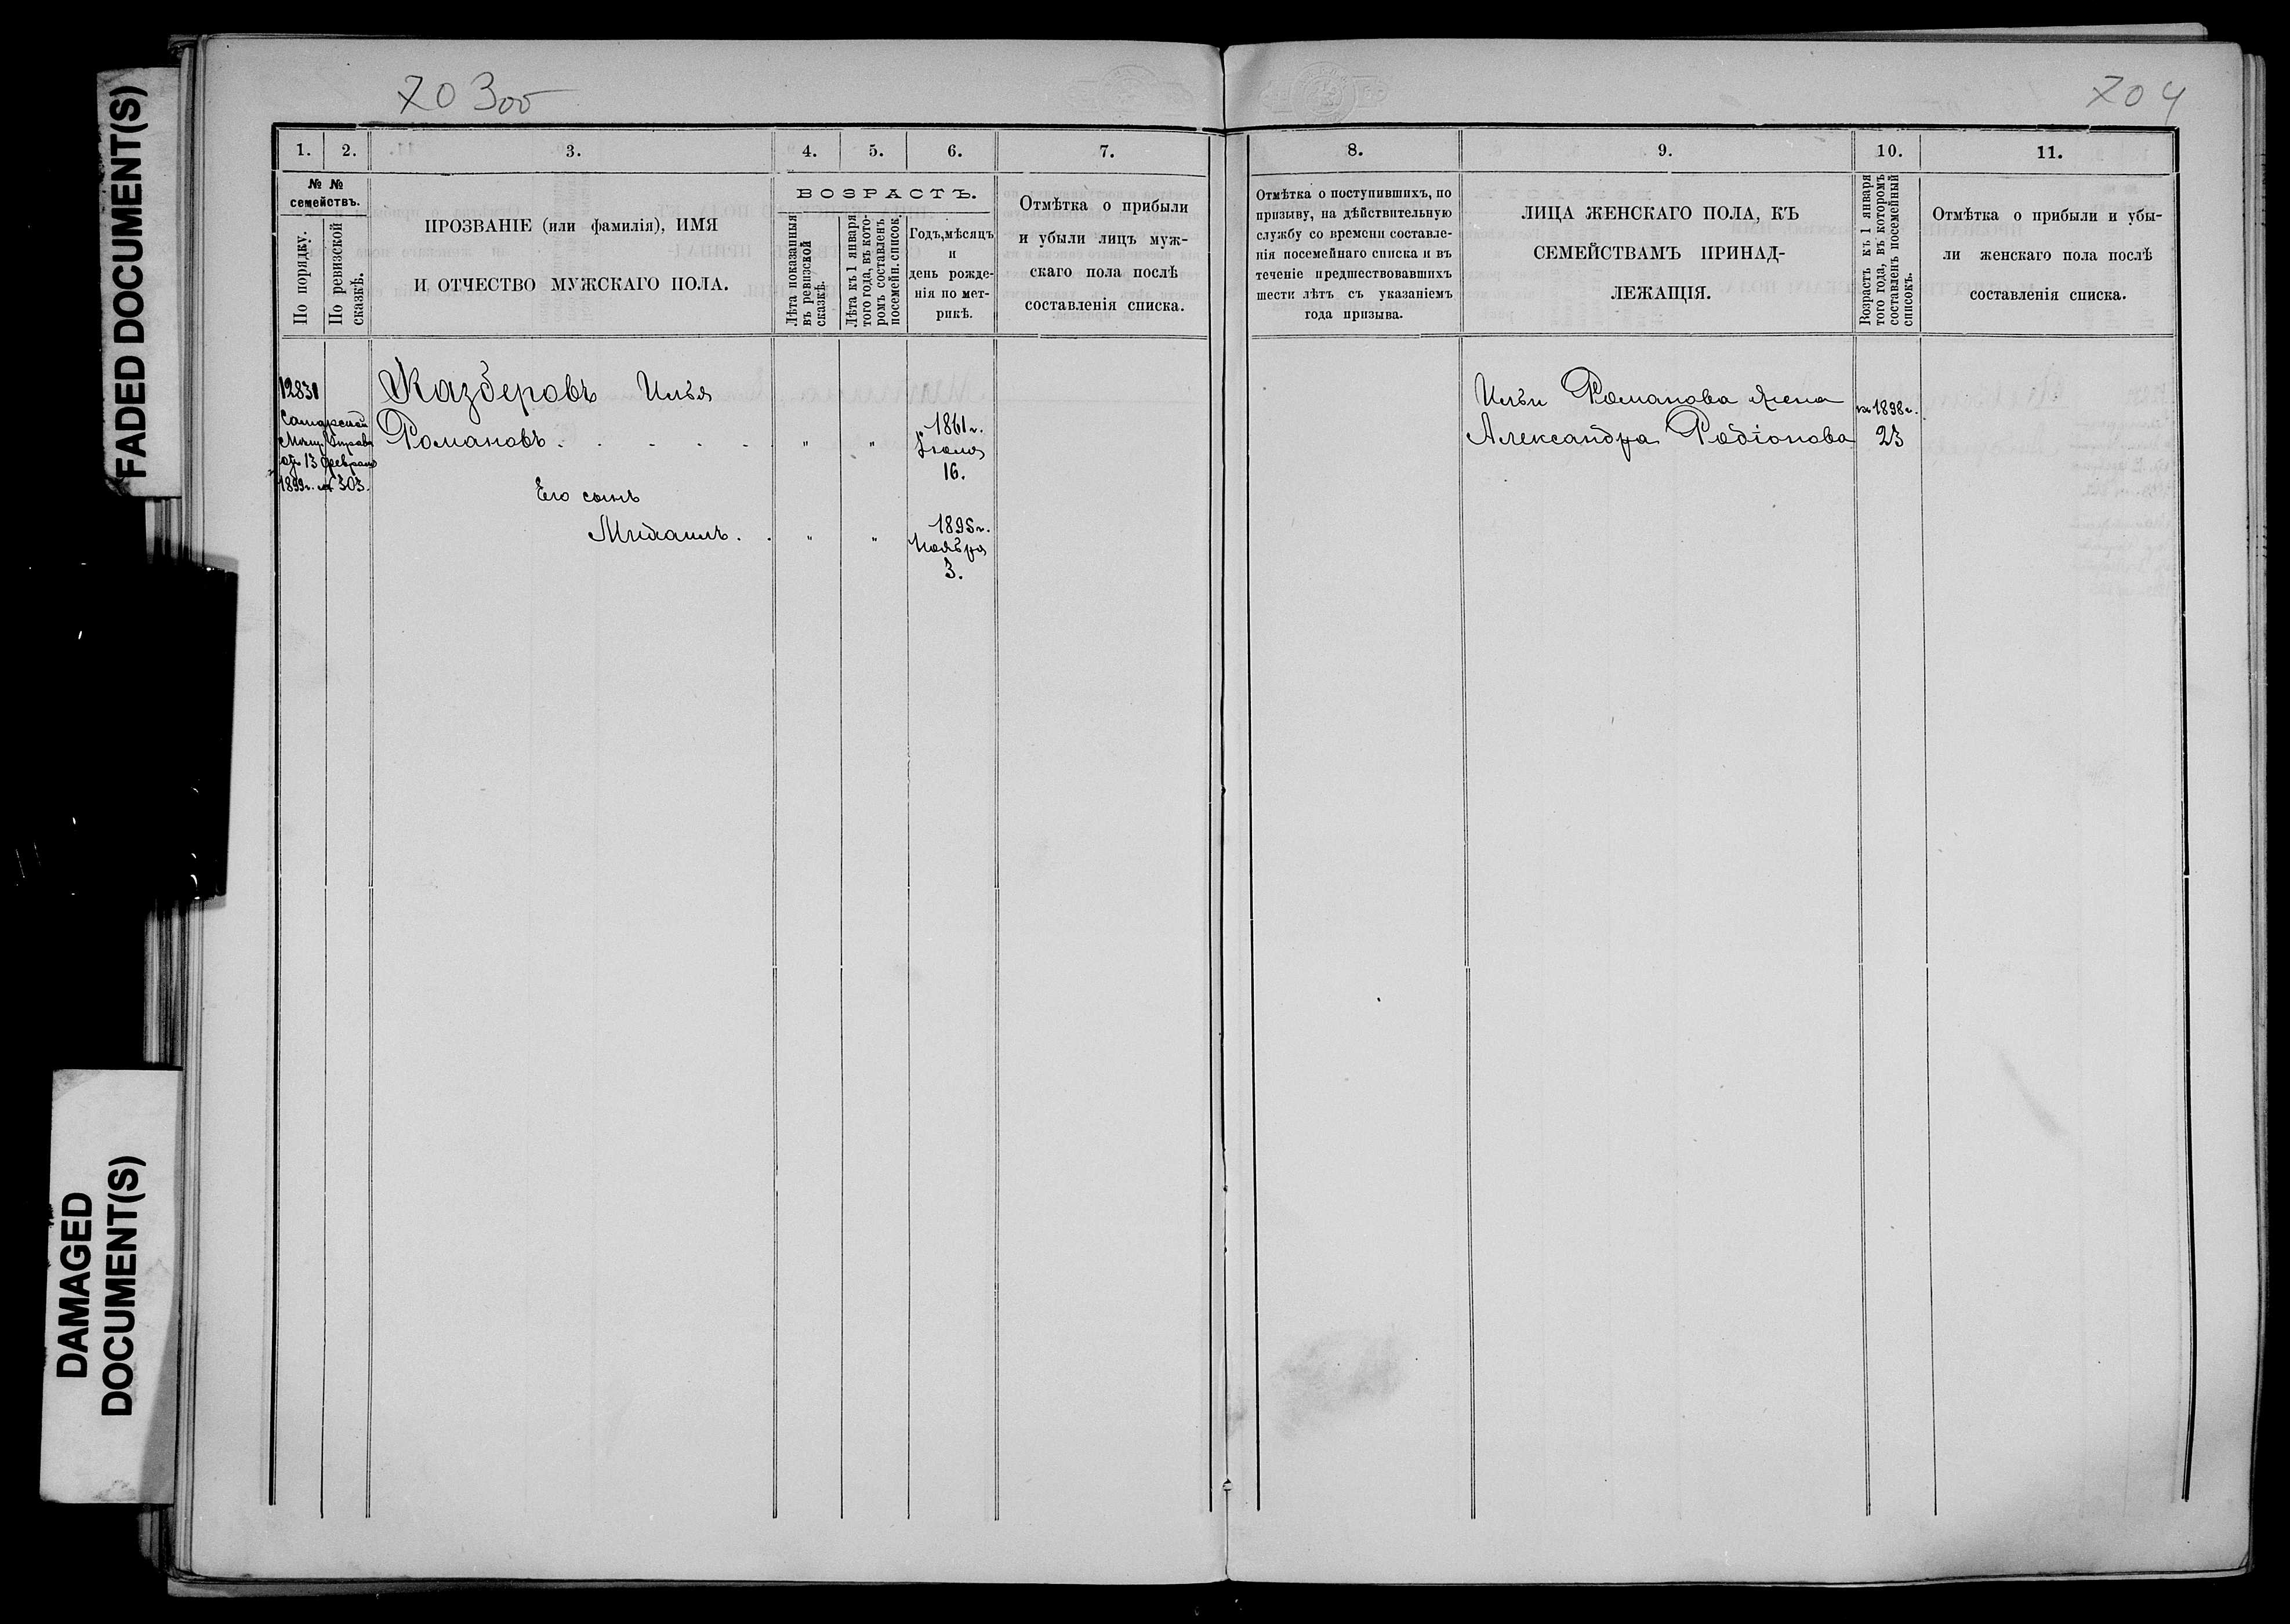 FADED DOCUMENT(S)
DAMAGED
DOCUMENT(S)
703об
1. 2. 3. 4. 5. 6. 7.
№ №
семействъ.
По порядку.
По ревизской
сказкѣ.
ПРОЗВАНІЕ (или фамилія), ИМЯ
И ОТЧЕСТВО МУЖСКАГО ПОЛА.
ВОЗРАСТЪ.
Лѣта показанныя
въ ревизской
сказкѣ.
Лѣта къ 1 января
того года, въ кото-
ромъ составленъ
посемейн. список.
Годъ, мѣсяцъ
и
день рожде-
нія по мет-
рикѣ.
Отмѣтка о прибыли
и убыли лицъ муж-
скаго пола послѣ
составленія списка.
12831
Самарской
Мѣщ. Управы
отъ 13 февраля
1899 г. № 303.
Казберовъ Илья
Романовъ . . . . . " " 1861 г.
Іюля
16.
Его сынъ
Михаилъ . . " " 1895 г.
Ноября
3.
704
8. 9. 10. 11.
Отмѣтка о поступившихъ, по
призыву, на дѣйствительную
службу со времени составле-
нія посемейнаго списка и въ
теченіе предшествовавшихъ
шести лѣтъ съ указаніемъ
года призыва.
ЛИЦА ЖЕНСКАГО ПОЛА, КЪ
СЕМЕЙСТВАМЪ ПРИНАД-
ЛЕЖАЩІЯ.
Возрастъ къ 1 января
того года, въ которомъ
составленъ посемейный
списокъ.
Отмѣтка о прибыли и убы-
ли женскаго пола послѣ
составленія списка.
Ильи Романова жена
Александра Родіонова
1898 г.
23